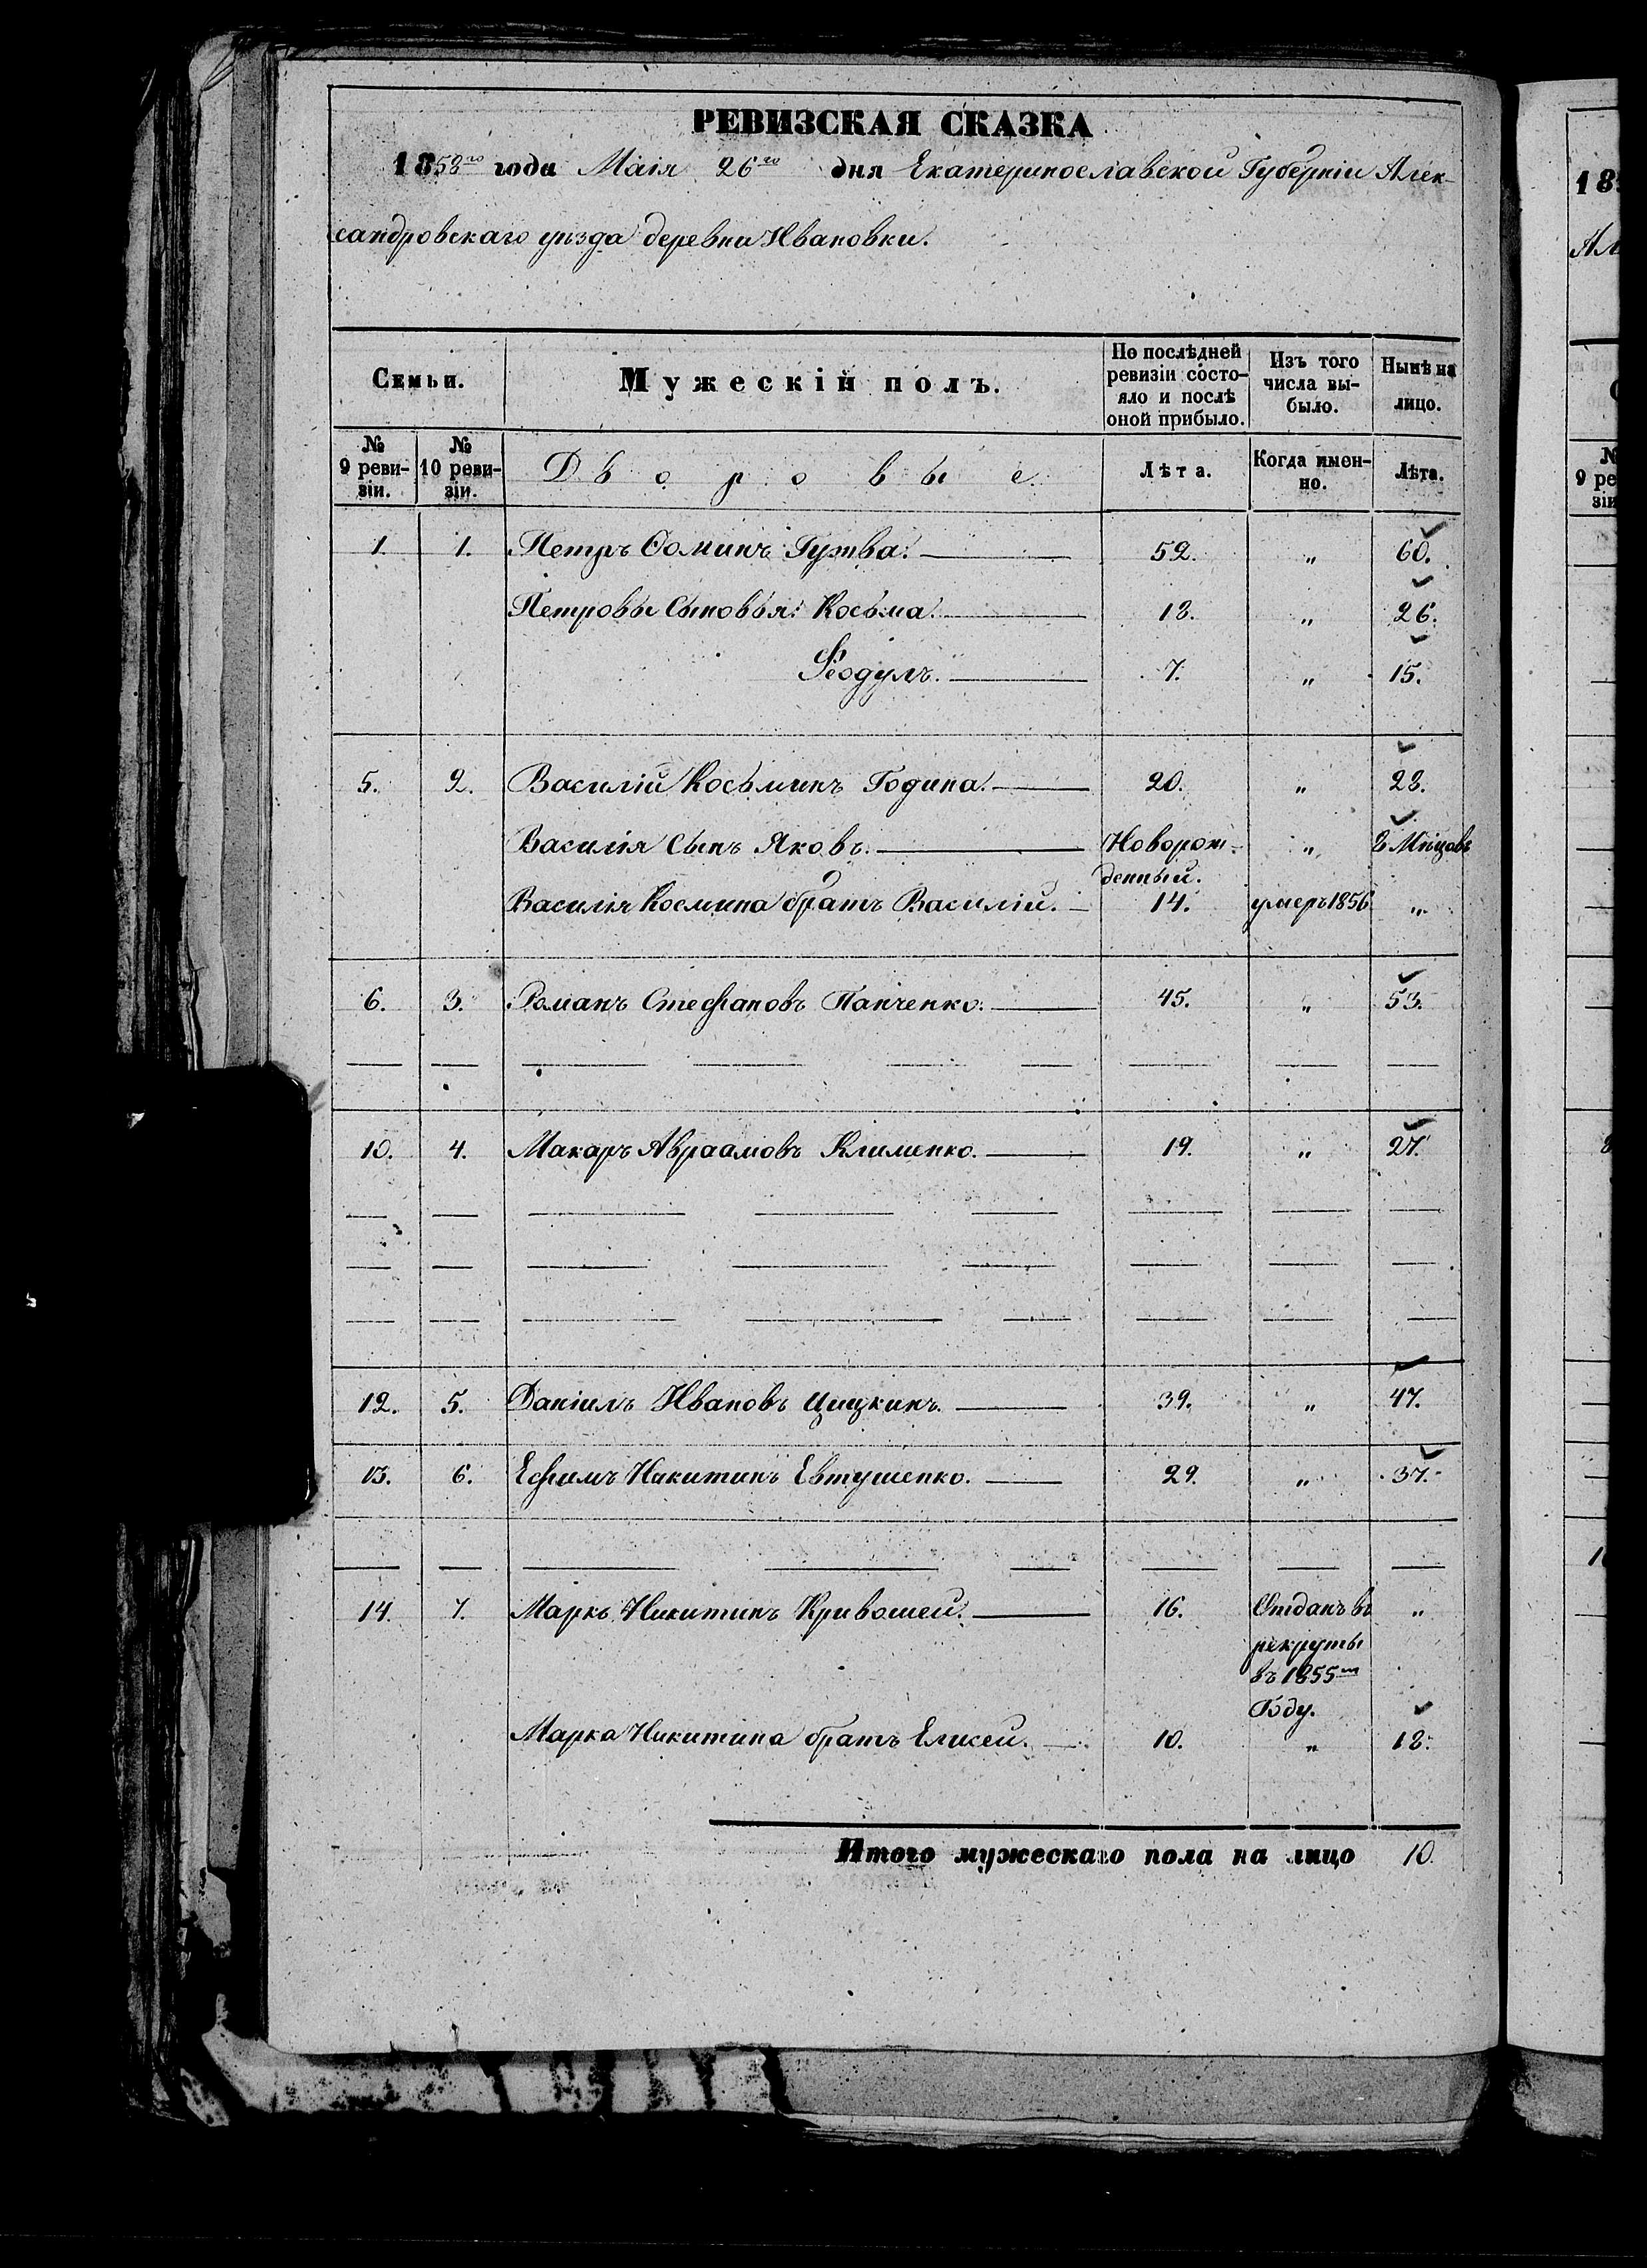 РЕВИЗСКАЯ СКАЗКА
1858го года Маія 26го дня Екатеринославской Губерніи Алек-
сандровскаго уѣзда деревни Ивановки.
Семьи. Мужескій полъ. По послѣдней ревизіи состо-яло и послѣ оной прибыло. Изъ того числа вы-было. Нынѣ на лицо.
№ 9 реви-зіи. № 10 реви-зіи. Дворовые. Лѣта. Когда имен-но. Лѣта.
1. 1. Петръ Ѳоминъ Гужва. 52. „ 60.
Петровы Сыновья: Косьма. 18. „ 26.
Ѳеодулъ. 7. „ 15.
5. 2. Василій Косьминъ Година. 20. „ 28.
Василія Сынъ Яковъ. Новорож-денный. „ 2 Мѣцовъ
Василія Космина братъ Василій. 14. умеръ 1856 „
6. 3. Романъ Стефановъ Панченко. 45. „ 53.
10. 4. Макаръ Авраамовъ Клименко. 19. „ 27.
12. 5. Даніилъ Ивановъ Цицкинъ. 39. „ 47.
13. 6. Ефимъ Никитинъ Евтушенко. 29. „ 37.
14. 7. Маркъ Никитинъ Кривошей. 16. Отданъ въ „
рекруты
въ 1855м
Году.
Марка Никитина братъ Елисей. 10. „ 18.
Итого мужескаго пола на лицо 10.
183
Ал
№
9 ре
зіи